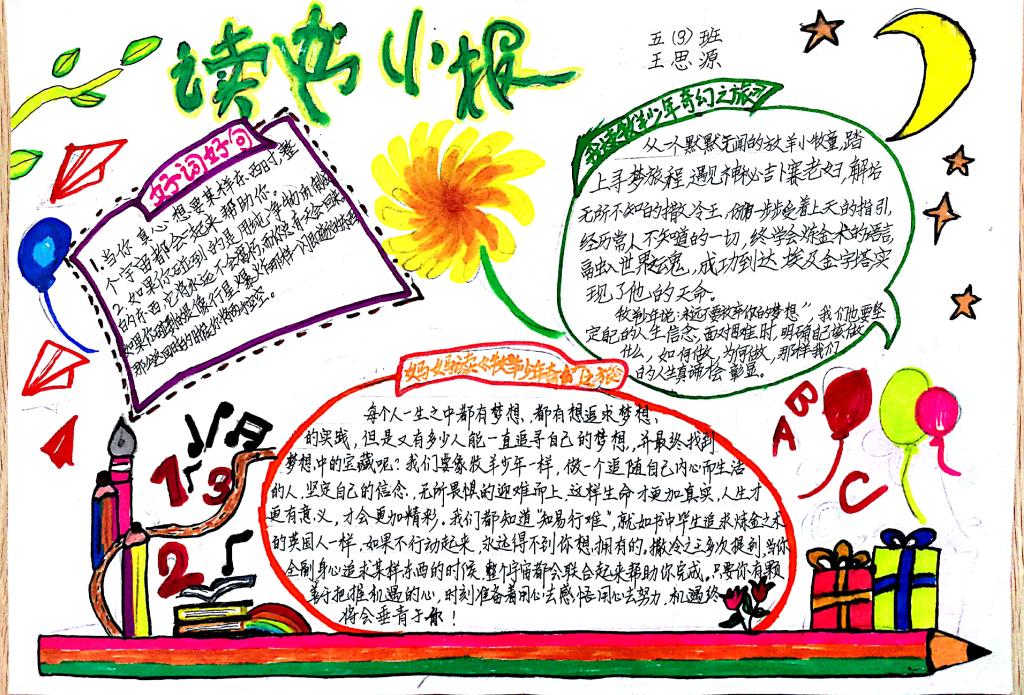 读书小报
五(3)班
王思源
好词好句
1.当你真心想要某样东西时,整
个宇宙都会起来帮助你。
2.如果你碰到的是用纯净的物质制成
的东西,它将永远不会腐朽,而你总有天会回来
我读牧羊少年奇幻之旅
从一个默默无闻的放羊小牧童,踏
上寻梦旅程,遇见神秘吉卜赛老妇,解若
无所不知的撒冷王,一步步受着上天的指引,
经历常人不知道的一切,终学会炼金术的语言,
融入世界之魂,成功到达埃及金字塔实
现了他的天命。
牧羊少年说:"永远不要放弃你的梦想",我们也要坚
定自己的人生信念,面对困难时,明确自己该做
什么,如何做,为何做,那样我们
的人生真谛才会彰显。
妈妈读《牧羊少年奇幻之旅》
每个人一生之中都有梦想,都有想追求梦想,
的实践,但是又有多少人能一直追寻自己的梦想,并最终找到
梦想中的宝藏呢?我们要象牧羊少年一样,做一个追随自己内心而生活
的人,坚定自己的信念,无所畏惧的迎难而上,这样生命才更加真实,人生才
更有意义,才会更加精彩。我们都知道"知易行难",就如书中毕生追求炼金之术
的英国人一样,如果不行动起来,永远得不到你想拥有的,撒冷之王多次提到,当你
全副身心追求某样东西的时候,整个宇宙都会联合起来帮助你完成。只要你有颗
善于把握机遇的心,时刻准备着用心去感悟用心去努力,机遇终
将会垂青于你!
B
A
C
1
3
2